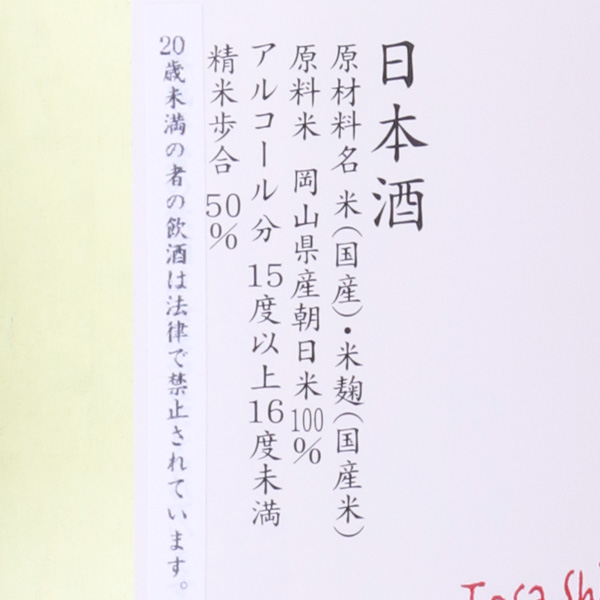 日本酒
原材料名 米(国産)・米麹(国産米)
原料米 岡山県産朝日米100%
アルコール分 15度以上16度未満
精米歩合 50%
20歳未満の者の飲酒は法律で禁止されています。
Tosa Shi